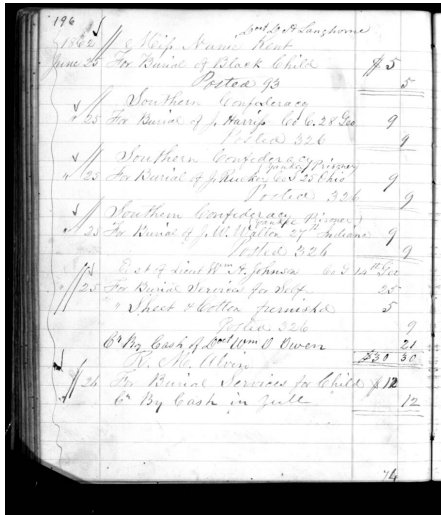 196
1862 Miss Nannie Kent
June 25 For Burial of Black Child $5
Posted 93 5
Southern Confederacy
" 25 For Burial of J. Harris Co C. 28 Geo 9
Posted 326 9
Southern Confederacy
" 25 For Burial of J 25 Ohio 9
Posted 326 9
Southern Confederacy
" 25 For Burial of J. W. Walton 27th Indiana 9
Posted 326 9
Est of Lieut Wm A. Johnson Co I 14th Geo
" 25 For Burial Services for Self 25
" Sheet & Cotton furnished 5
Posted 326 9
Cr By Cash of Wm O Owen 21
$30 30
R. M. Alvin
" 26 For Burial Services for Child $12
Cr By Cash in full 12
74